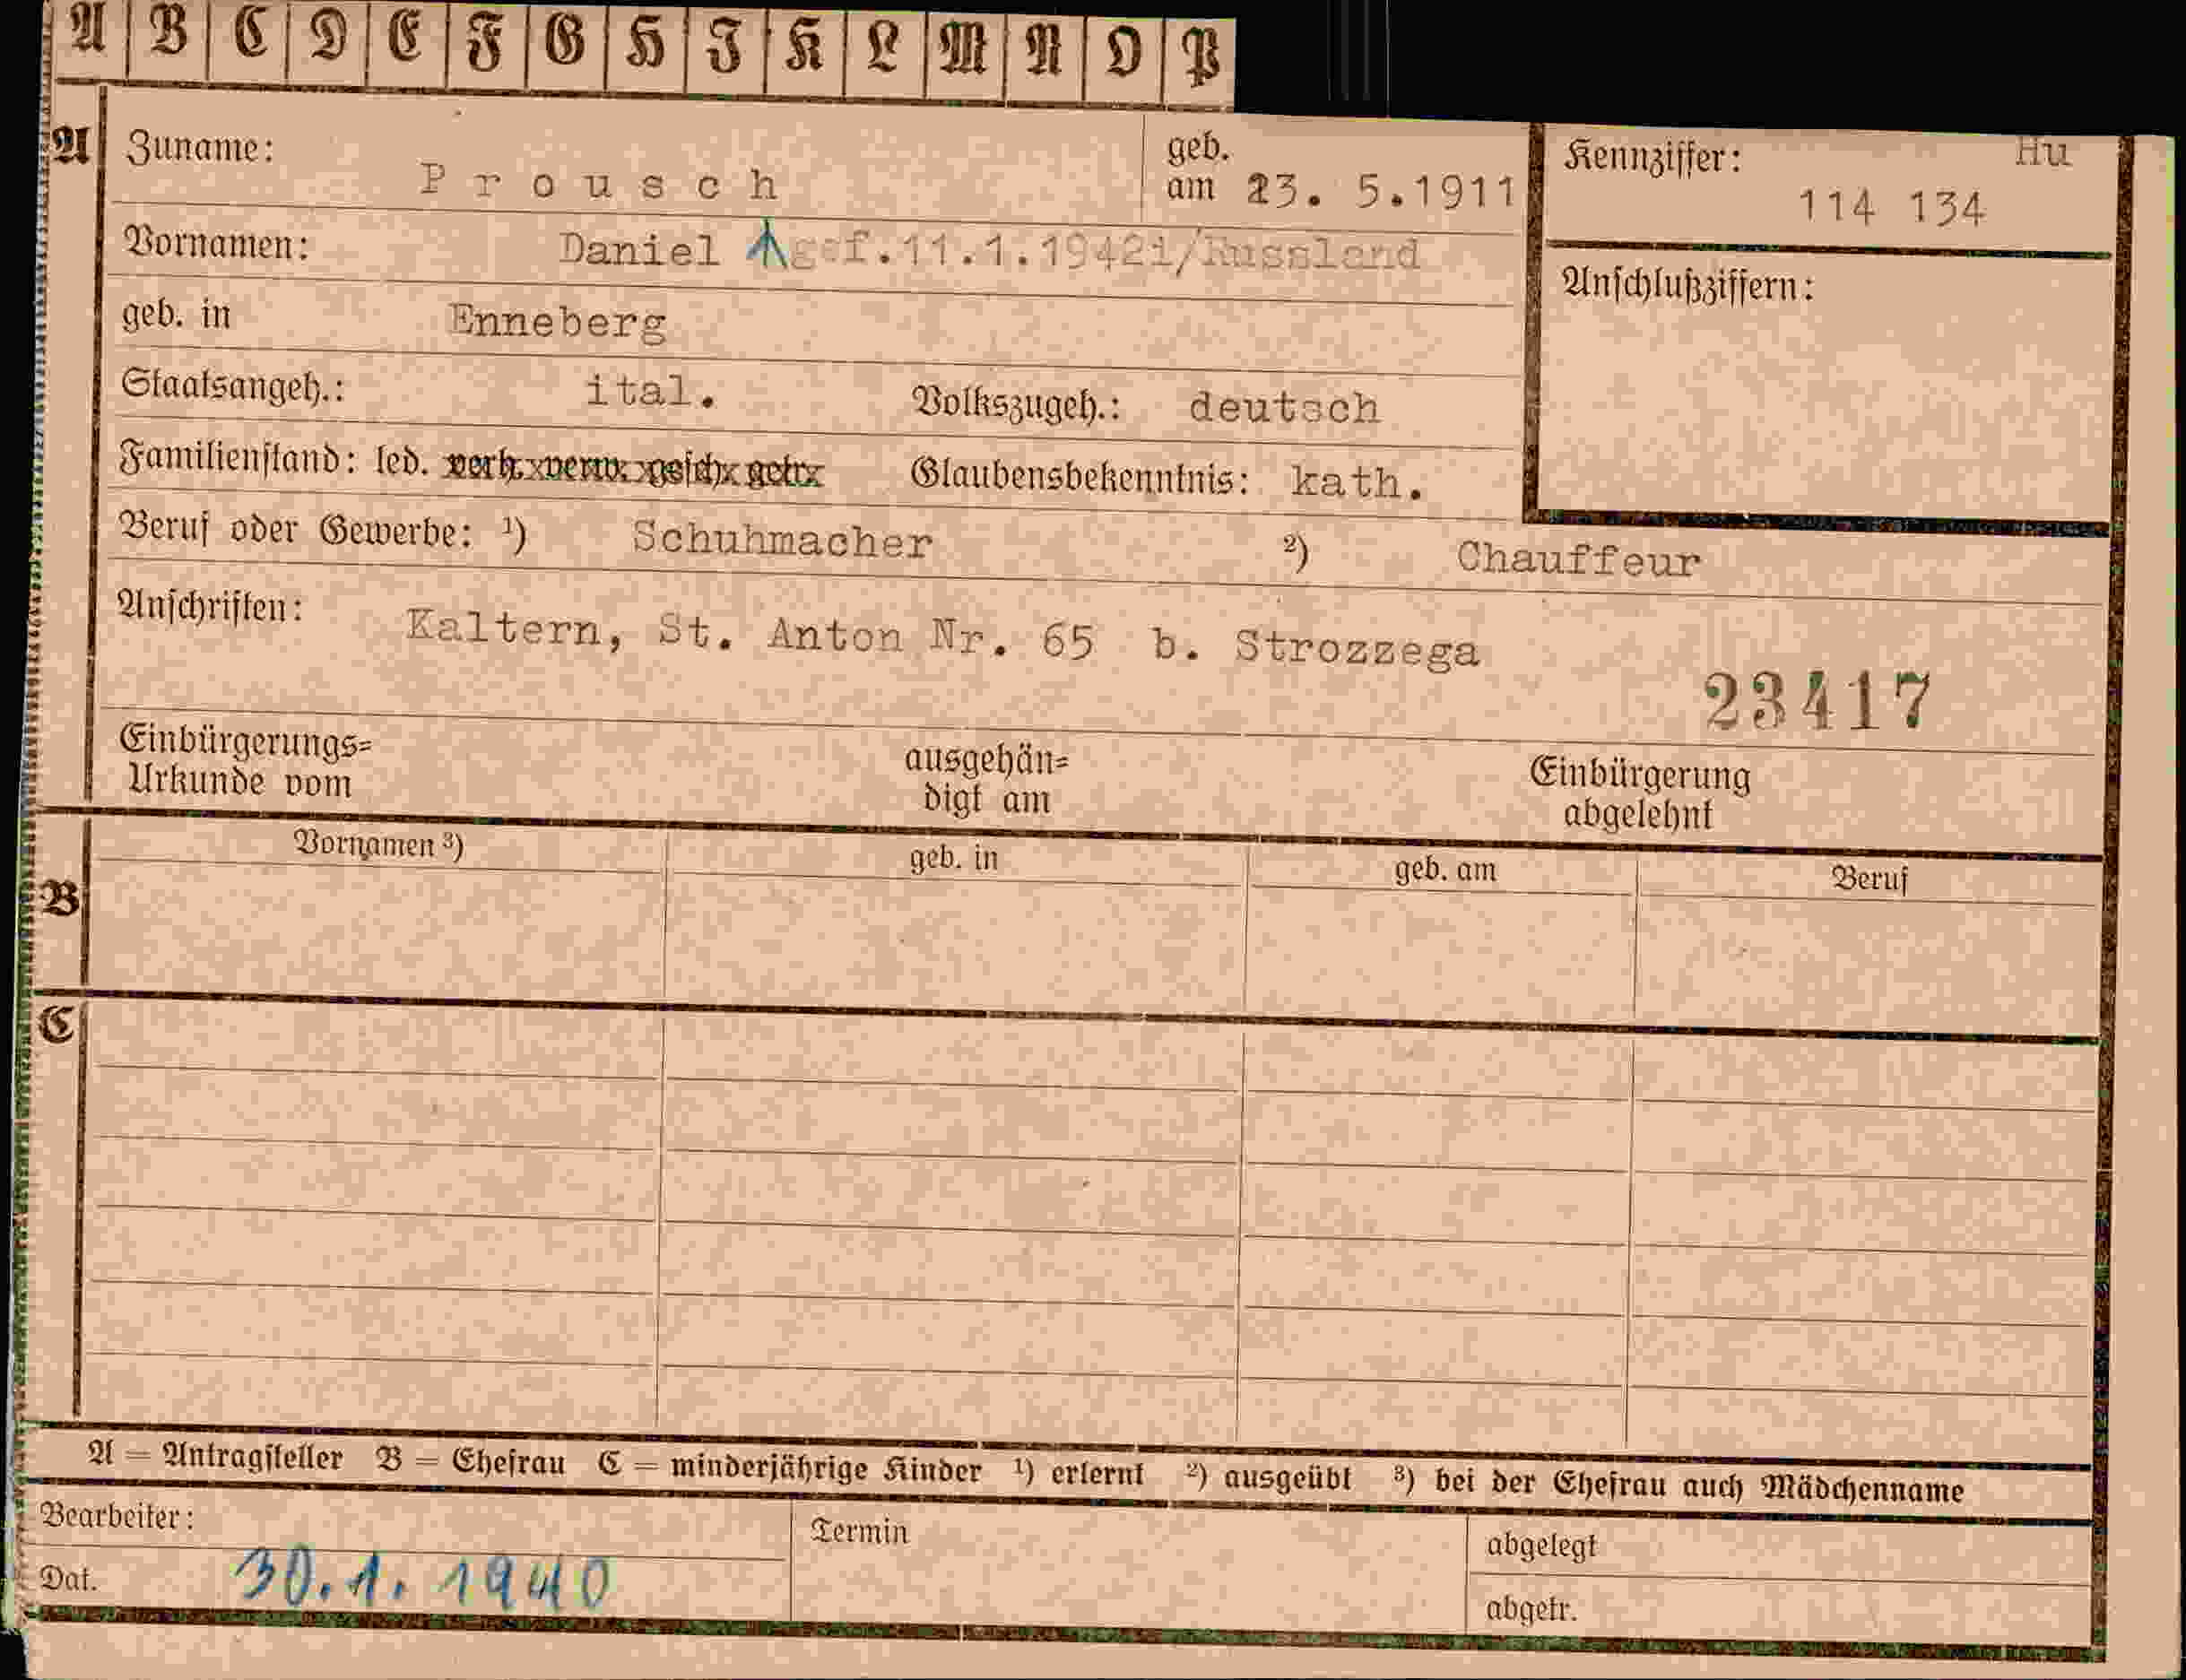 A B C D E F G H I K L M N O P
A Zuname: Prousch geb. am 23. 5.1911 Kennziffer: Hu 114 134
Vornamen: Daniel gef.11.1.1942i/Russland Anschlußziffern:
geb. in Enneberg
Staatsangeh.: ital. Volkszugeh.: deutsch
Familienstand: led. verh. verw. gesch. getr. Glaubensbekenntnis: kath.
Beruf oder Gewerbe: ¹) Schuhmacher ²) Chauffeur
Anschriften: Kaltern, St. Anton Nr. 65 b. Strozzega
23417
Einbürgerungs=
Urkunde vom
ausgehän=
digt am
Einbürgerung
abgelehnt
B Vornamen ³) geb. in geb. am Beruf
C
A = Antragsteller B = Ehefrau C = minderjährige Kinder ¹) erlernt ²) ausgeübt ³) bei der Ehefrau auch Mädchenname
Bearbeiter: Termin abgelegt
Dat. 30.1.1940 abgetr.